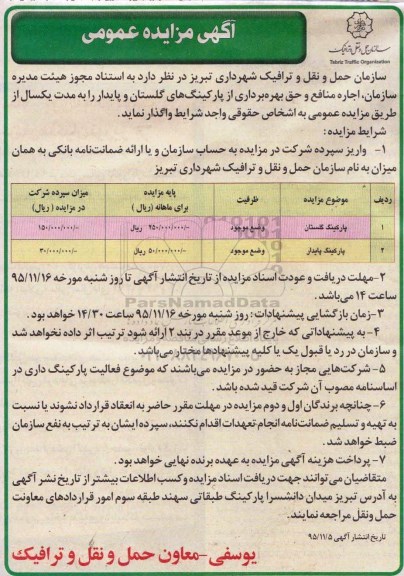 آگهی مزایده عمومی
سازمان حمل و نقل و ترافیک
Tabriz Traffic Organization
سازمان حمل و نقل و ترافیک شهرداری تبریز در نظر دارد به استناد مجوز هیئت مدیره
سازمان، اجاره منافع و حق بهره‌برداری از پارکینگ‌های گلستان و پایدار را به مدت یکسال از
طریق مزایده عمومی به اشخاص حقوقی واجد شرایط واگذار نماید.
شرایط مزایده:
۱- واریز سپرده شرکت در مزایده به حساب سازمان و یا ارائه ضمانت‌نامه بانکی به همان
میزان به نام سازمان حمل و نقل و ترافیک شهرداری تبریز
ردیف موضوع مزایده ظرفیت پایه مزایده برای ماهانه (ریال) میزان سپرده شرکت در مزایده (ریال)
۱ پارکینگ گلستان وضع موجود ۲۵۰/۰۰۰/۰۰۰/- ریال ۱۵۰/۰۰۰/۰۰۰/-
۲ پارکینگ پایدار وضع موجود ۵۰/۰۰۰/۰۰۰/- ریال ۳۰/۰۰۰/۰۰۰/-
۲-مهلت دریافت و عودت اسناد مزایده از تاریخ انتشار آگهی تا روز شنبه مورخه ۹۵/۱۱/۱۶
ساعت ۱۴ می‌باشد.
ParsNamadData
۳-زمان بازگشایی پیشنهادات: روز شنبه مورخه ۹۵/۱۱/۱۶ ساعت ۱۴/۳۰ خواهد بود.
۴- به پیشنهاداتی که خارج از موعد مقرر در بند ۲ ارائه شود ترتیب اثر داده نخواهد شد
و سازمان در رد یا قبول یک یا کلیه پیشنهادها مختار می‌باشد.
۵- شرکت‌هایی مجاز به حضور در مزایده می‌باشند که موضوع فعالیت پارکینگ داری در
اساسنامه مصوب آن شرکت قید شده باشد.
۶-چنانچه برندگان اول و دوم مزایده در مهلت مقرر حاضر به انعقاد قرارداد نشوند یا نسبت
به تهیه و تسلیم ضمانت‌نامه انجام تعهدات اقدام نکنند، سپرده ایشان به ترتیب به نفع سازمان
ضبط خواهد شد.
۷- پرداخت هزینه آگهی مزایده به عهده برنده نهایی خواهد بود.
متقاضیان می‌توانند جهت دریافت اسناد مزایده و کسب اطلاعات بیشتر از تاریخ نشر آگهی
به آدرس تبریز میدان دانشسرا پارکینگ طبقاتی سهند طبقه سوم امور قراردادهای معاونت
حمل ونقل مراجعه نمایند.
تاریخ انتشار آگهی ۹۵/۱۱/۵
یوسفی-معاون حمل و نقل و ترافیک